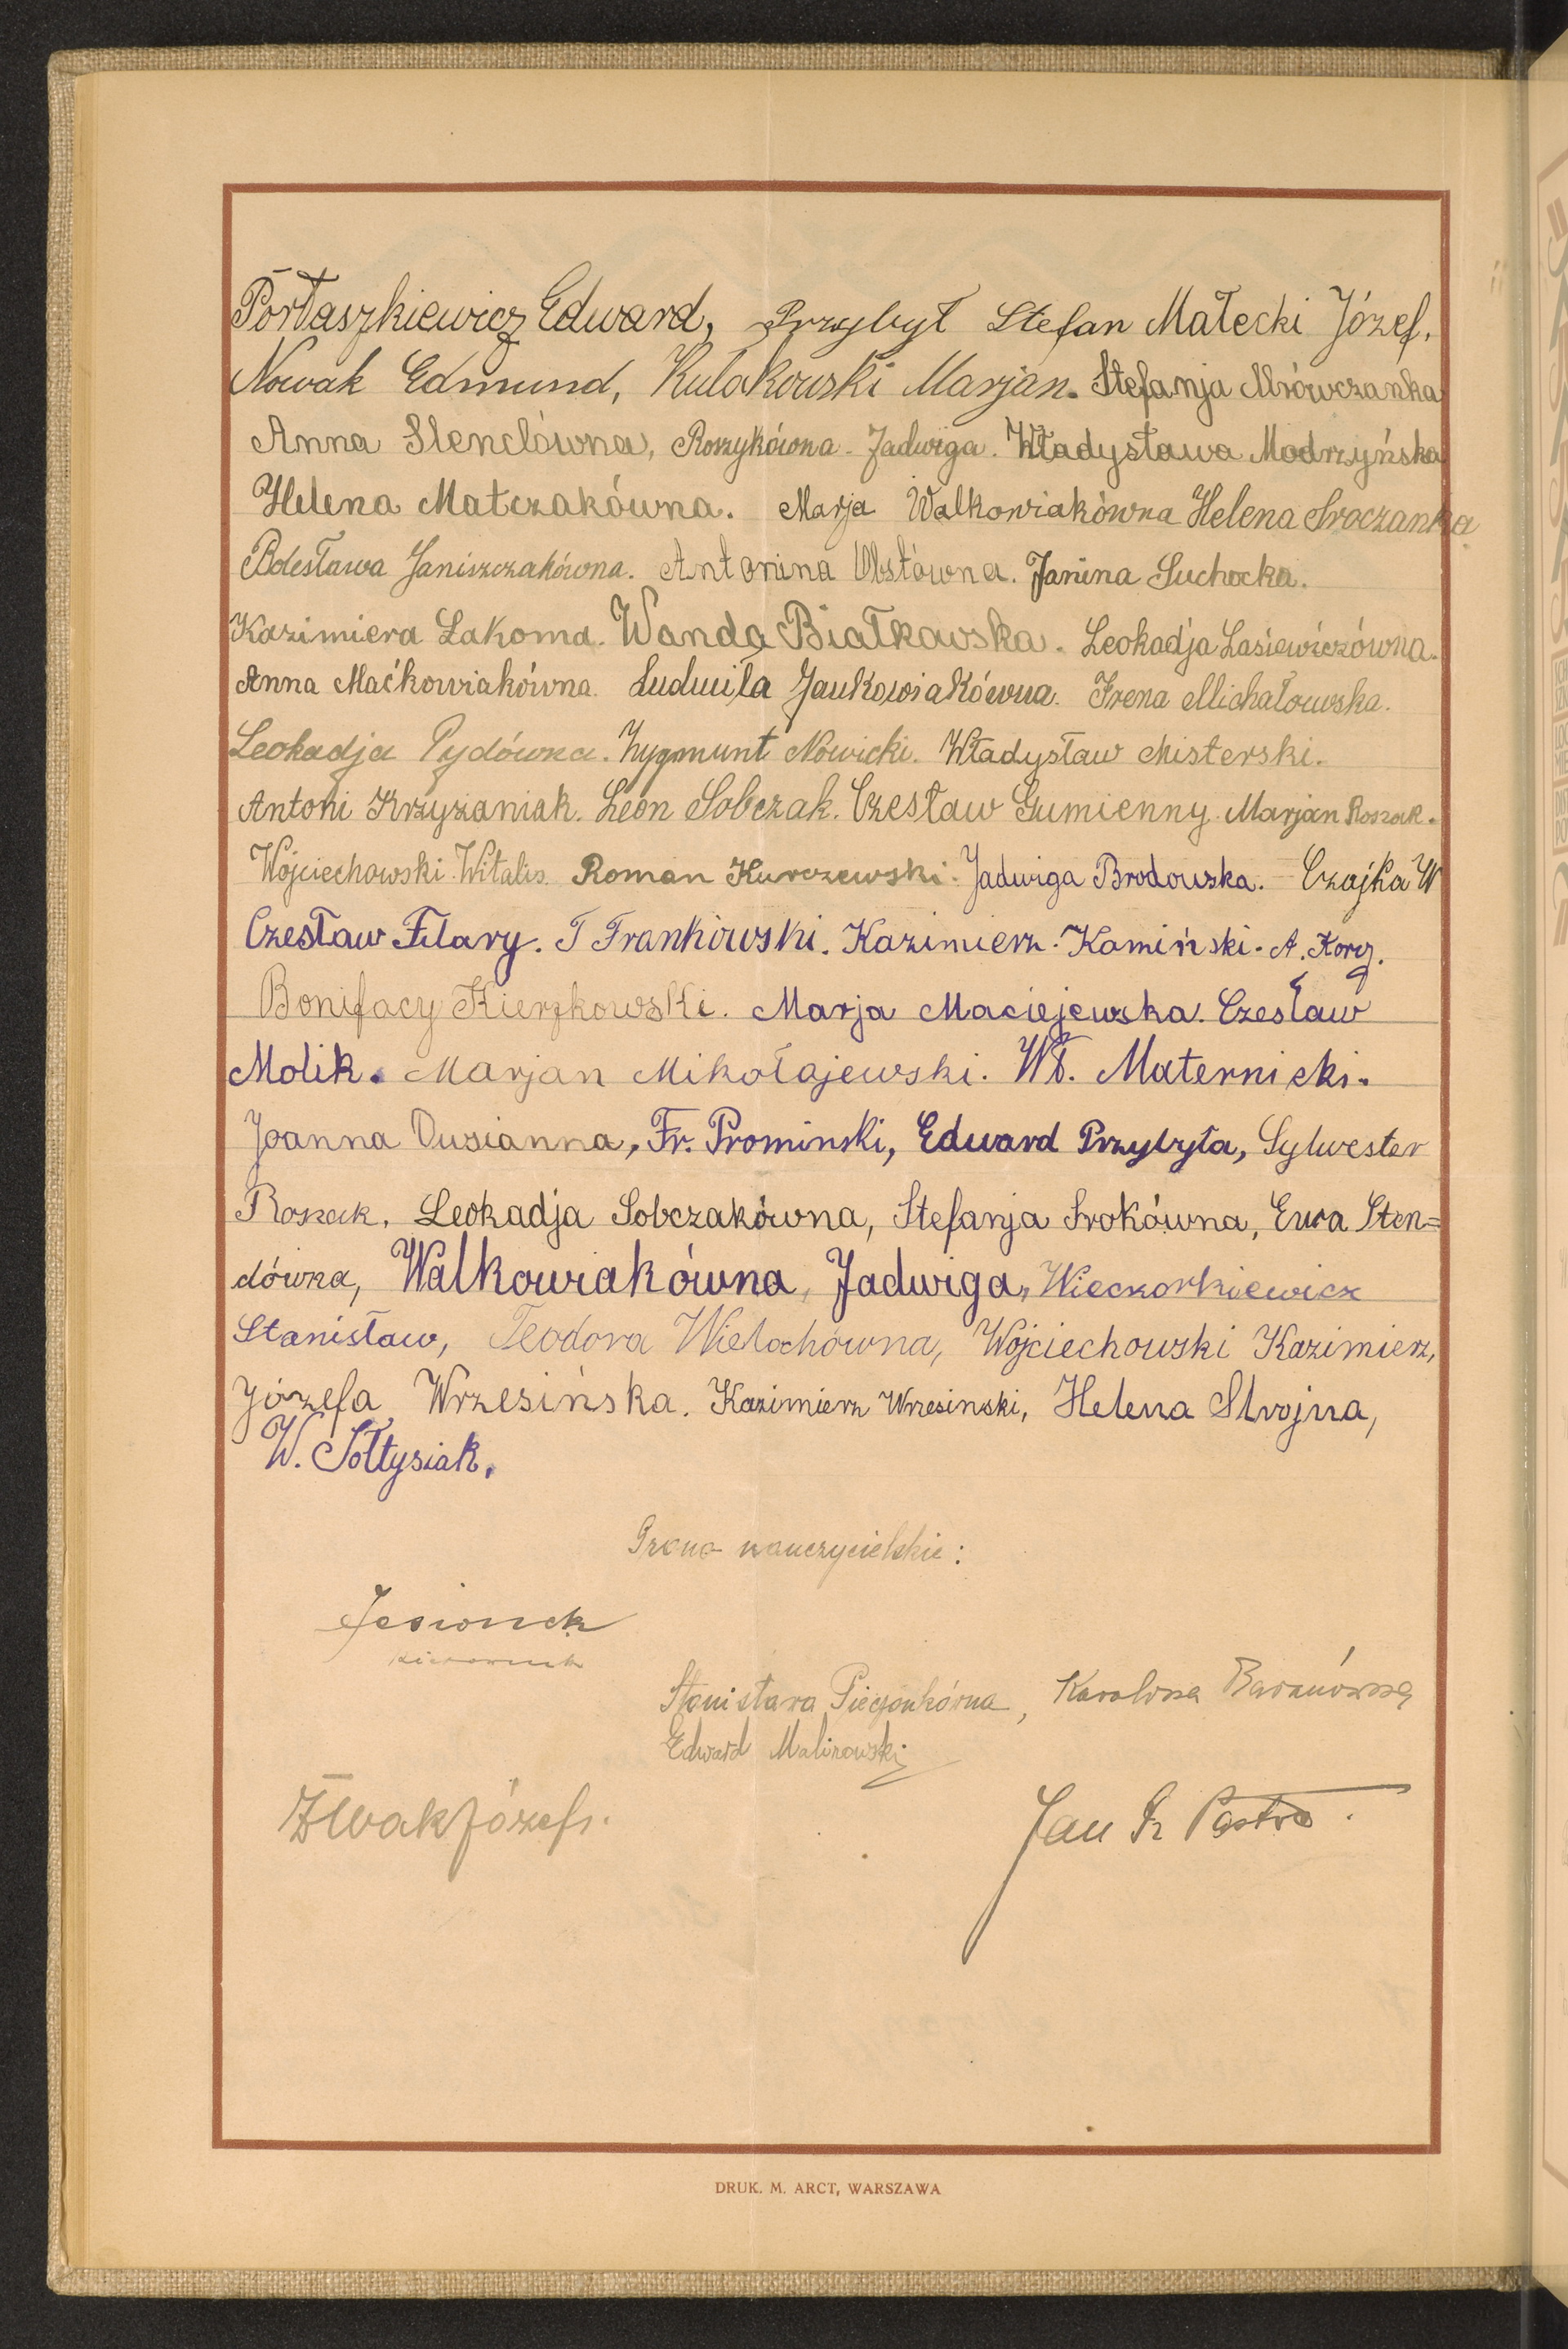 Portaszkiewicz Edward, Przybył Stefan Małecki Józef.
Nowak Edmund, Kulakowski Marjan. Stefanja Mrówczanka
Anna Stenclówna, Roszykówna - Jadwiga. Władysława Modrzyńska
Helena Matczakówna. Marja Walkowiakówna Helena Sroczanka
Bolesława Janiszczakówna. Antonina Obstówna. Janina Suchocka.
Kazimiera Łakoma. Wanda Białkowska. Leokadja Lasiewiczówna.
Anna Maćkowiakówna. Ludmiła Jankowiakówna. Irena Michałowska.
Leokadja Pydówna. Zygmunt Nowicki. Władysław Misterski.
Antoni Krzyżaniak. Leon Sobczak. Czesław Gumienny. Marjan Roszak.
Wojciechowski Witalis. Roman Kurczewski. Jadwiga Brodowska. Czajka W
Czesław Filary. T Frankowski. Kazimierz Kamiński. A. Korcz.
Bonifacy Kierzkowski. Marja Maciejewska. Czesław
Molik. Marjan Mikołajewski. Wł. Maternicki.
Joanna Dusianna, Fr. Prominski, Edward Przybyła, Sylwester
Roszak, Leokadja Sobczakówna, Stefanja Srokówna, Ewa Sten=
dówna, Walkowiakówna, Jadwiga, Wieczorkiewicz
Stanisław, Teodora Wielochówna, Wojciechowski Kazimierz,
Józefa Wrzesińska. Kazimierz Wrzesinski, Helena Strojna,
W. Sołtysiak.
Grono nauczycielskie:
Jesionek
kierownik
Stanisława Piecjonkówna, Karolina Baranówna
Edward Malinowski
Żwak Józef.
Jan Fr Pastwo.
DRUK. M. ARCT, WARSZAWA